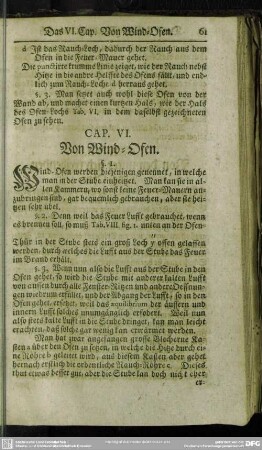 Das VI. Cap. Von Wind-Ofen. 61
4 Ist das Rauch-Loch, dadurch der Rauch aus dem
Ofen in die Feuer-Mauer gehet.
Die punctirte krumme Linie zeiget, wie der Rauch nebst
Hitze in die andre Helffte des Ofens fällt, und end-
lich zum Rauch-Loche 4 herraus gehet.
§. 3. Man setzet auch wohl diese Ofen von der
Wand ab, und machet einen kurtzen Hals, wie der Hals
des Ofen-Lochs Tab. VI. in dem daselbst gezeichneten
Ofen zu sehen.
CAP. VI.
Von Wind-Ofen.
§. 1.
Wind-Ofen werden diejenigen genennet, in welche
man in der Stube einheitzet. Man kan sie in al-
len Kammern, wo sonst keine Feuer-Mauern an-
zubringen sind, gar bequemlich gebrauchen, aber sie hei-
tzen sehr übel.
§. 2. Denn weil das Feuer Lufft gebrauchet, wenn
es brennen soll, so muß Tab. VIII. fig. 1. unten an der Ofen-
Thür in der Stube stets ein groß Loch y offen gelassen
werden, durch welches die Lufft aus der Stube das Feuer
im Brand erhält.
§. 3. Wann nun also die Lufft aus der Stube in den
Ofen gehet, so wird die Stube mit anderer kalten Lufft
von aussen durch alle Fenster-Ritzen und andere Oeffnun-
gen wiedrum erfüllet, und der Abgang der Lufft, so in den
Ofen gehet, ersetzet; weil das æquilibrium der äussern und
innern Lufft solches unumgänglich erfodert. Weil nun
also stets kalte Lufft in die Stube dringet, kan man leicht
erachten, daß solche gar wenig kan erwärmet werden.
Man hat zwar angefangen grosse blecherne Ka-
sten a über den Ofen zu setzen, in welche die Hitze durch ei-
ne Röhre b geleitet wird, aus diesem Kasten aber gehet
hernach erstlich die ordentliche Rauch-Röhre c. Dieses
thut etwas besser gut, aber die Stube kan doch nicht eher
er-
SLUB
DFG